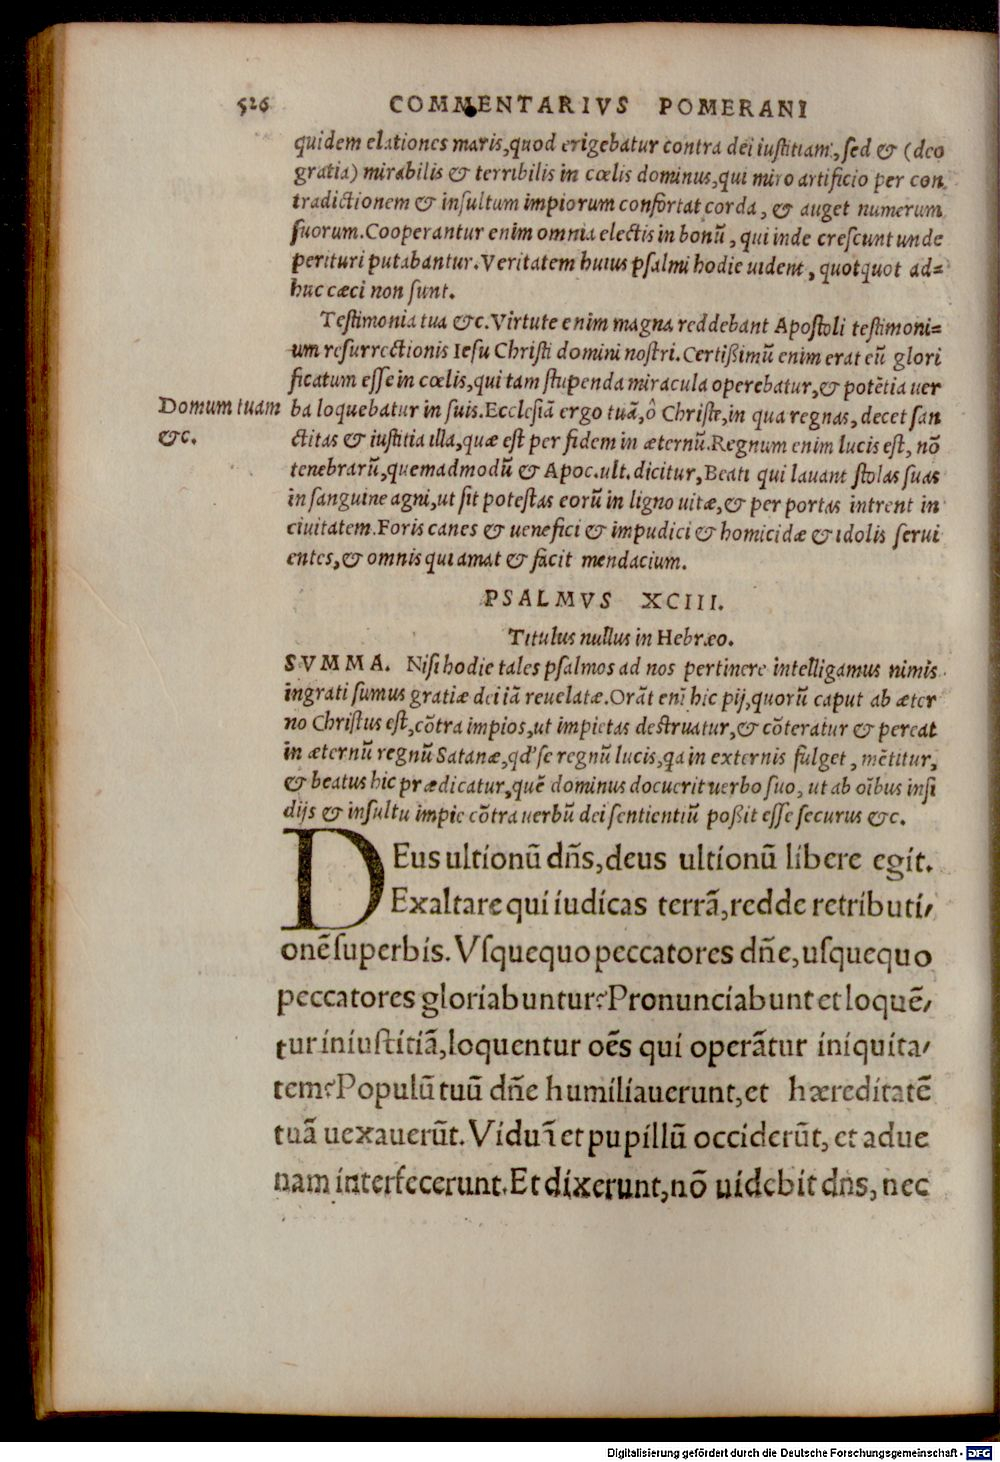 526 COMMENTARIVS POMERANI
quidem elationes maris,quod erigebatur contra dei iustitiam,sed & (deo
gratia) mirabilis & terribilis in cœlis dominus,qui miro artificio per con
tradictionem & insultum impiorum confortat corda, & auget numerum
suorum.Cooperantur enim omnia electis in bonū, qui inde crescunt unde
perituri putabantur.Veritatem huius psalmi hodie uident, quotquot ad=
huc cæci non sunt.
Testimonia tua &c.Virtute enim magna reddebant Apostoli testimoni=
um resurrectionis Iesu Christi domini nostri.Certißimū enim erat eū glori
ficatum esse in cœlis,qui tam stupenda miracula operebatur,& potētia uer
Domum tuam
&c.
ba loquebatur in suis.Ecclesiā ergo tuā,ô Christe,in qua regnas, decet san
ctitas & iustitia illa,quæ est per fidem in æternū.Regnum enim lucis est, nō
tenebrarū,quemadmodū & Apoc.ult.dicitur,Beati qui lauant stolas suas
in sanguine agni,ut sit potestas eorū in ligno uitæ,& per portas intrent in
ciuitatem.Foris canes & uenefici & impudici & homicidæ & idolis serui
entes,& omnis qui amat & facit mendacium.
PSALMVS XCIII.
Titulus nullus in Hebræo.
SVMMA. Nisi hodie tales psalmos ad nos pertinere intelligamus nimis
ingrati sumus gratiæ dei iā reuelatæ.Orāt enī hic pij,quorū caput ab æter
no Christus est,cōtra impios,ut impietas destruatur,& cōteratur & pereat
in æternū regnū Satanæ,qd' se regnū lucis,qa in externis fulget, mētitur,
& beatus hic prædicatur,quē dominus docuerit uerbo suo, ut ab oībus insi
dijs & insultu impie cōtra uerbū dei sentientiū poßit esse securus &c.
DEus ultionū dn̄s,deus ultionū libere egit.
Exaltare qui iudicas terrā,redde retributi/
onē superbis. Vsquequo peccatores dn̄e,usquequo
peccatores gloriabuntur?Pronunciabunt et loquē/
tur iniustitiā,loquentur oēs qui operātur iniquita/
tem?Populū tuū dn̄e humiliauerunt,et hæreditatē
tuā uexauerūt. Viduā et pupillū occiderūt, et adue
nam interfecerunt.Et dixerunt,nō uidebit dn̄s, nec
Digitalisierung gefördert durch die Deutsche Forschungsgemeinschaft - DFG